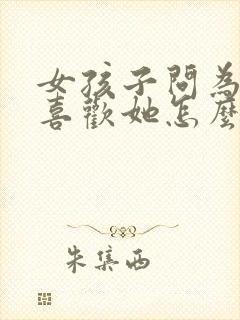 女孩子問為
喜歡她怎麼
朱集西